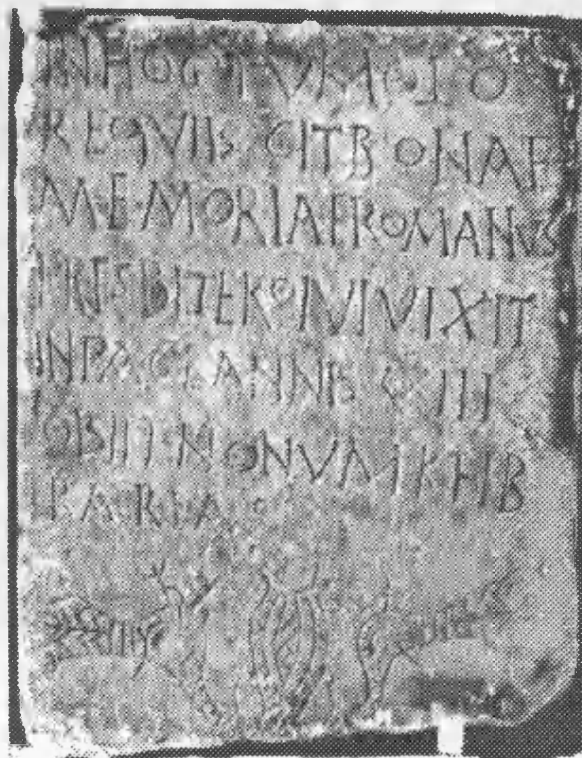 IN HOC TVMOLO
REQVIISCIT BONAE
MEMORIAE ROMANVS
PRESBITER QVI VIXIT
IN PACE ANNIS
OBIIT NONVM K FEB
RARIAS